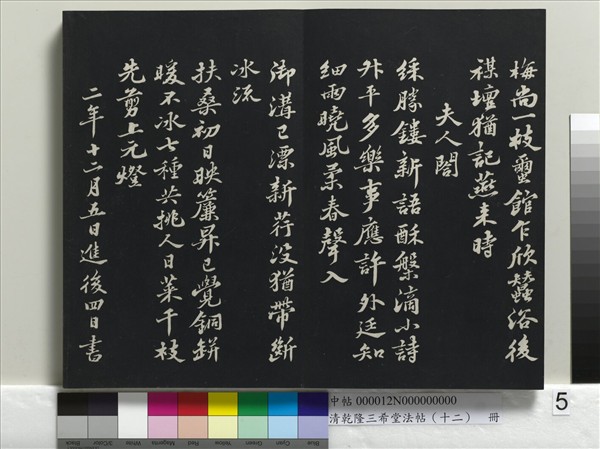 梅尚一枝璽館乍欣蠶浴後
禖壇猶記燕來時
夫人閤
綵勝鏤新語酥槃滴小詩
升平多樂事應許外廷知
細雨曉風柔春聲入
御溝已漂新荇沒猶帶斷
冰流
扶桑初日映簾昇已覺銅缾
暖不冰七種共挑人日菜千枝
先剪上元燈
二年十二月五日進後四日書
中帖 000012N000000000
清乾隆三希堂法帖（十二） 冊
5
Black
3/Color
White
Magenta
Red
Yellow
Green
Cyan
Blue